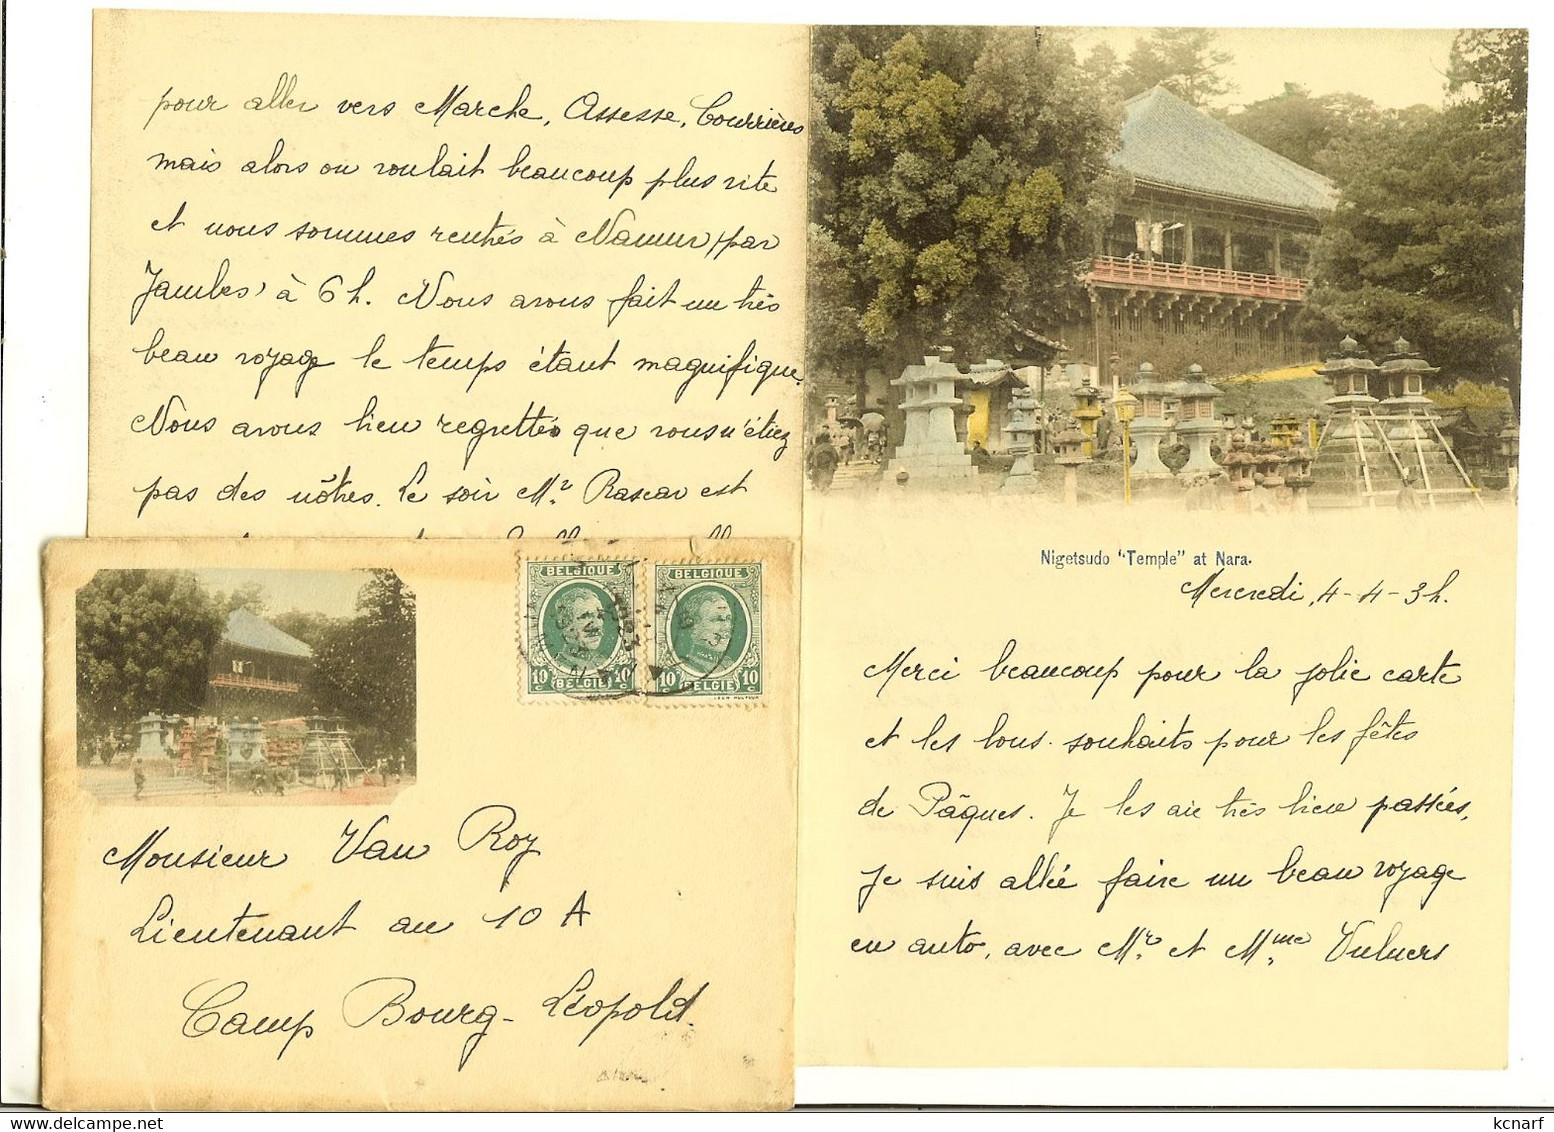 pour aller vers Marche, Assesse, Courrières
mais alors on roulait beaucoup plus vite
et nous sommes rentrés à Namur, par
Jambes, à 6 h. Nous avons fait un très
beau voyage le temps étant magnifique.
Nous avons bien regretté que vous n'étiez
pas des nôtres. Le soir Mr Rascar est
Nigetsudo "Temple" at Nara.
Mercredi, 4-4-3 h.
Merci beaucoup pour la jolie carte
et les bons souhaits pour les fêtes
de Pâques. Je les ai très bien passées,
je suis allée faire un beau voyage
en auto, avec Mr. et Mme
BELGIQUE
10 10
BELGIE
BELGIQUE
10 10
BELGIE
Monsieur Van Roy
Lieutenant au 10 A
Camp Bourg-Léopold.
kcnarf